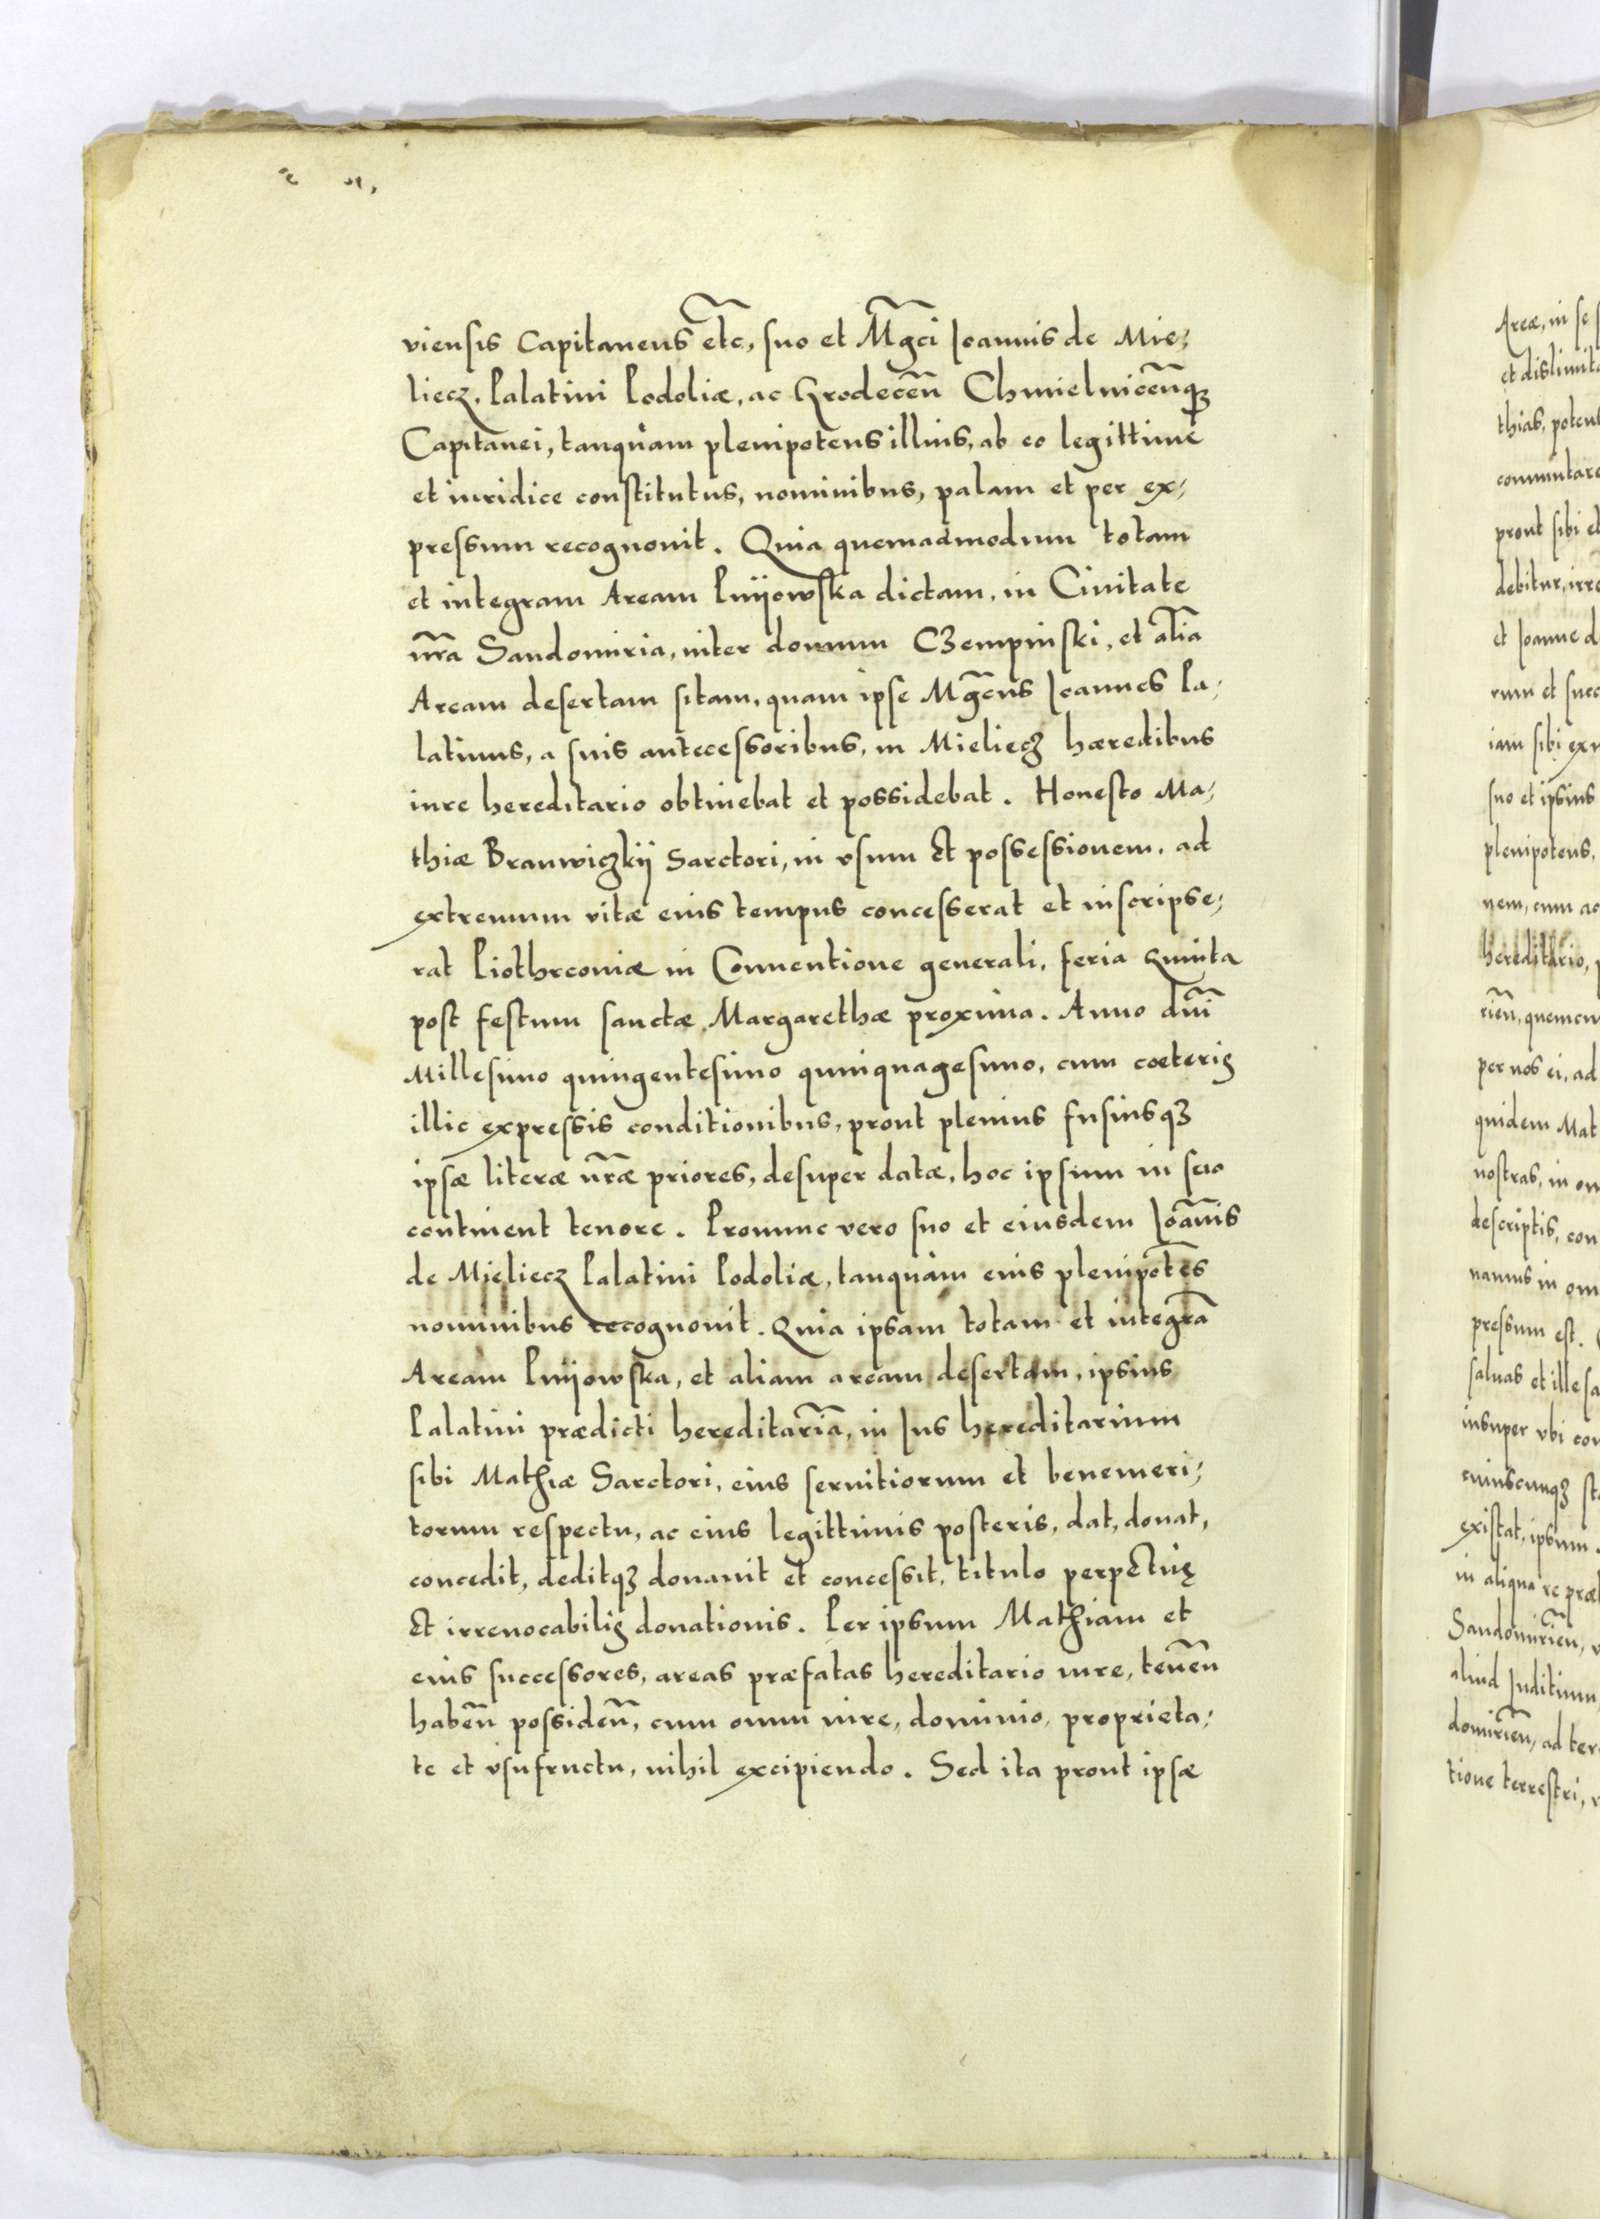 viensis Capitaneus etc̃, suo et Mg̃ci Ioannis de Mie,
liecz. Palatini Podoliæ, ac Grodeceñ Chmielniceñq3
Capitanei, tanquam plenipotens illius, ab eo legittime
et iuridice constitutus, nominibus, palam et per ex,
pressum recognouit. Quia quemadmodum totam
et integram Aream Pnijowska dictam, in Ciuitate
nr̃a Sandomiria, inter domum Czempinski, et alĩa
Aream desertam sitam, quam ipse Mg̃cus Ioannes Pa,
latinus, a suis antecessoribus, in Mieliecz hæredibus
iure hereditario obtinebat et possidebat. Honesto Ma,
thiæ Branwiczkij Sarctori, in vsum Et possessionem, ad
extremum vitæ eius tempus concesserat et inscripse,
rat Piothrconiæ in Conuentione generali, feria Quinta
post festum sanctæ Margarethæ proxima. Anno dñi
Millesimo quingentesimo quinquagesimo, cum cœteris
illic expressis conditionibus, prout plenius fusiusq3
ipsæ literæ nr̃æ priores, desuper datæ, hoc ipsum in suo
continent tenore. Pronunc vero suo et eiusdem Ioãnis
de Mieliecz Palatini Podoliæ, tanquam eius plenipot̃es
nominibus recognouit. Quia ipsam totam et integrã
Aream Pnijowska, et aliam aream desertam, ipsius
Palatini prædicti hereditariã, in Ius hereditarium
sibi Mathiæ Sarctori, eius seruitiorum et benemeri,
torum respectu, ac eius legittimis posteris, dat, donat,
concedit, deditq3 donauit et concessit, titulo perpEtuę
Et irreuocabilis donationis. Per ipsum Mathiam et
eius successores, areas præfatas hereditario iure, teneñ
habeñ possideñ, cum omni iure, dominio, proprieta,
te et vsufructu, nihil excipiendo. Sed ita prout ipsæ
Areæ, in se
thias, potens
prout sibi et
et Ioanne d
rum et succ
suo et ipsius
plenipotens,
nem, cum ac
hereditario,
per nos ei, ad
quidem Mat
nostras, in om
descriptis, con
pressum est.
insuper vbi con
existat, ipsum
in aliqua re præ
Sandomirieñ,
aliud Iuditium
domirieñ, ad ter
tione terrestri,